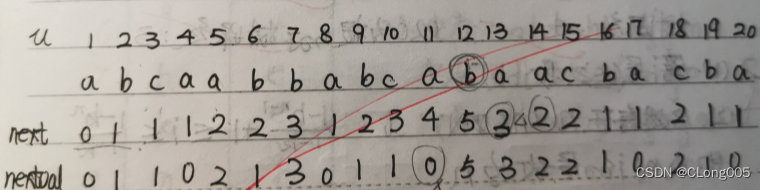 u 1 2 3 4 5 6 7 8 9 10 11 12 13 14 15 16 17 18 19 20
a b c a a b b a b c a b a a c b a c b a
next 0 1 1 1 2 2 3 1 2 3 4 5 3 2 2 1 1 2 1 1
nextval 0 1 1 0 2 1 3 0 1 1 0 5 3 2 2 1 0 2 1 0
CSDN @CLong005